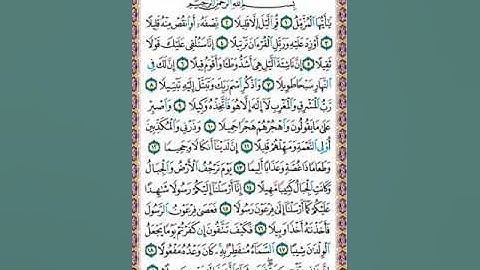 بِسْمِ ٱللَّهِ ٱلرَّحْمَٰنِ ٱلرَّحِيمِ
يَٰٓأَيُّهَا ٱلْمُزَّمِّلُ ١ قُمِ ٱلَّيْلَ إِلَّا قَلِيلًا ٢ نِّصْفَهُۥٓ أَوِ ٱنقُصْ مِنْهُ قَلِيلًا
٣ أَوْ زِدْ عَلَيْهِ وَرَتِّلِ ٱلْقُرْءَانَ تَرْتِيلًا ٤ إِنَّا سَنُلْقِى عَلَيْكَ قَوْلًا
ثَقِيلًا ٥ إِنَّ نَاشِئَةَ ٱلَّيْلِ هِىَ أَشَدُّ وَطْـًٔا وَأَقْوَمُ قِيلًا ٦ إِنَّ لَكَ فِى
ٱلنَّهَارِ سَبْحًا طَوِيلًا ٧ وَٱذْكُرِ ٱسْمَ رَبِّكَ وَتَبَتَّلْ إِلَيْهِ تَبْتِيلًا ٨
رَّبُّ ٱلْمَشْرِقِ وَٱلْمَغْرِبِ لَآ إِلَٰهَ إِلَّا هُوَ فَٱتَّخِذْهُ وَكِيلًا ٩ وَٱصْبِرْ
عَلَىٰ مَا يَقُولُونَ وَٱهْجُرْهُمْ هَجْرًا جَمِيلًا ١٠ وَذَرْنِى وَٱلْمُكَذِّبِينَ
أُو۟لِى ٱلنَّعْمَةِ وَمَهِّلْهُمْ قَلِيلًا ١١ إِنَّ لَدَيْنَآ أَنكَالًا وَجَحِيمًا ١٢
وَطَعَامًا ذَا غُصَّةٍ وَعَذَابًا أَلِيمًا ١٣ يَوْمَ تَرْجُفُ ٱلْأَرْضُ وَٱلْجِبَالُ
وَكَانَتِ ٱلْجِبَالُ كَثِيبًا مَّهِيلًا ١٤ إِنَّآ أَرْسَلْنَآ إِلَيْكُمْ رَسُولًا شَٰهِدًا
عَلَيْكُمْ كَمَآ أَرْسَلْنَآ إِلَىٰ فِرْعَوْنَ رَسُولًا ١٥ فَعَصَىٰ فِرْعَوْنُ ٱلرَّسُولَ
فَأَخَذْنَٰهُ أَخْذًا وَبِيلًا ١٦ فَكَيْفَ تَتَّقُونَ إِن كَفَرْتُمْ يَوْمًا يَجْعَلُ
ٱلْوِلْدَٰنَ شِيبًا ١٧ ٱلسَّمَآءُ مُنفَطِرٌۢ بِهِۦ كَانَ وَعْدُهُۥ مَفْعُولًا ١٨